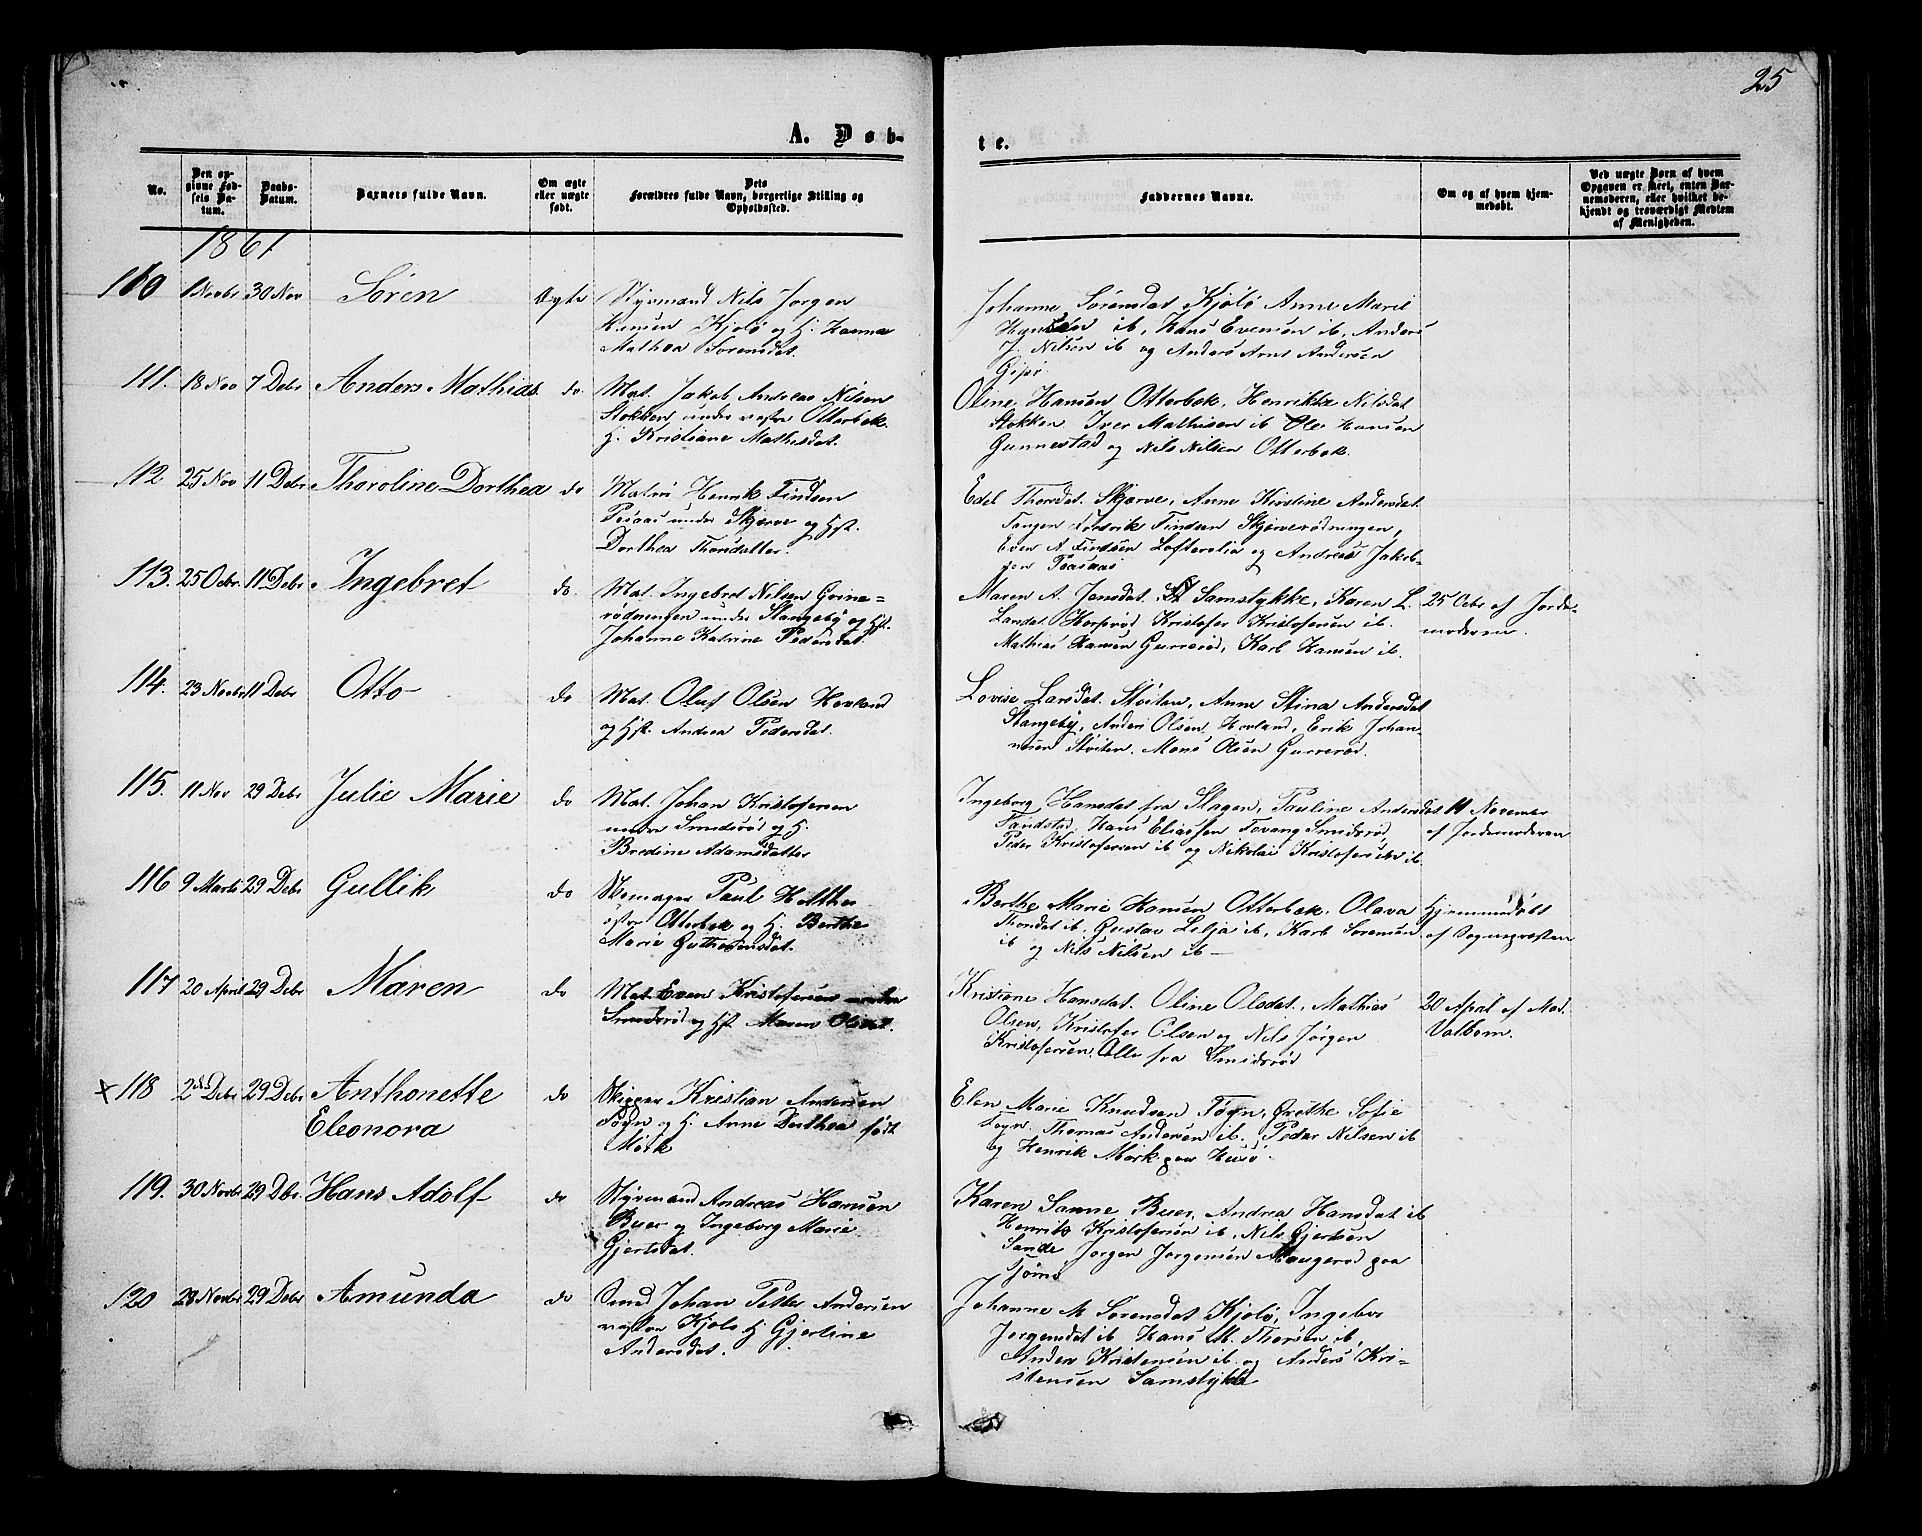 25
A. Døb-
te.
No.
Den op-
givne Fød-
sels Da-
tum.
Daabs-
Datum.
Barnets fulde Navn.
Om ægte
eller uægte
født.
Dets
Forældres fulde Navn, borgerlige Stilling og
Opholdssted.
Faddernes Navne.
Om og af hvem hjem-
medøbt.
Ved uægte Børn af hvem
Opgaven er skeet, enten Bar-
nemoderen, eller hvilket be-
kjendt og troværdigt Medlem
af Menigheden.
1861
110 1 Novbr 30 Nov Sören Ægte Styrmand Nils Jorgen
Hansen Kjolö og H. Hanna
Mathea Sorensdat.
Johanne Sörensdat Kjölö Anne Marie
Hansen ib, Hans Evensen ib, Anders
J. Nilsen ib og Anders Arnt Andersen
Gipö
111. 18 Nov 7 Debr Anders Mathias do. Mat. Jakob Andreas Nilsen
Stokken under vestre Otterbek
H. Kristiane Mathisdat.
Oline Hansen Otterbek, Henrikke Nilsdat
Stokken Iver Mathisen ib Ole Hansen
Gunnestad og Nils Nilsen Otterbek.
112 25 Nov 11 Debr Thoroline Dorthea do Matrs Henrik Findsen
under Skjerve og Hst.
Dorthea Thorsdatter.
Edel Thorsdat. Skjerve, Anne Kirstine Andersdat.
Tangen Fredrik Findsen Skjerverödningen,
Even A. Findsen Lofterölia og Andreas Jakob-
sen
113. 25 Octr. 11 Debr. Ingebret do. Mat. Ingebret Nilsen Grine-
rödningen under Stangeby og Hst.
Johanne Katrine Pedersdat.
Maren A. Jensdat. Samstykke, Karen L.
Larsdat Horperöd Kristofer Kristofersen ib.
Mathias Hansen Gurreröd, Karl Hansen ib.
25 Octr af Jorde-
moderen.
114. 23 Novbr 11 Debr Otto do Mat. Oluf Olsen Hovland
og Hst. Andrea Pedersdat.
Lovise Larsdat. Stöiten, Anne Stina Andersdat
Stangeby, Anders Olsen Hovland, Erik Johan-
nesen Stöiten. Mons Olsen Gurreröd.
115. 11 Nov 29 Debr Julie Marie do Mat. Johan Kristofersen
under Smidsröd og H.
Bredine Adamsdatter
Ingeborg Hansdat fra Slagen, Pauline Andersdat
Fandstad, Hans Eliassen Tovang Smidsröd,
Peder Kristofersen ib og Nikolai Kristofersen ib
11 November
af Jordemoderen
116 9 Marts 29 Debr Gullik do Skomager Paul Holther
östre Otterbek og H. Berthe
Marie Guthormsdat.
Berthe Marie Hansen Otterbek. Olava
Thorsdat ib, Gustav Lilja ib, Karl Sorensen
ib og Nils Nilsen ib —
Hjemmedöbt
af Sognepræsten
117 20 April 29 Debr Maren do Mat. Even Kristofersen under
Smidsröd og Hst Maren Olsdat.
Kristiane Hansdat. Oline Olsdat., Mathias
Olsen, Kristofer Olsen og Nils Jörgen
Kristofersen, Alle fra Smidsröd
20 April af Mad.
Valbom.
x 118 2den Debr 29 Debr Anthonette
Eleonora do Skipper Kristian Andersen
Togn og H. Anne Dorthea födt
Mörk
Elen Marie Knudsen Togn, Grethe Sofie
Togn. Thomas Andersen ib. Peder Nilsen ib
og Henrik Mörk paa Husö.
119. 30 Novbr 29 Dbr Hans Adolf do Styrmand Andreas Hansen
Buer og Ingeborg Marie
Gjertsdat.
Karen Sanne Buer, Andrea Hansdat ib
Henrik Kristofersen ib, Nils Gjertsen
Sande, Jorgen Jorgensen Maugeröd paa
Tjömö
120 28 Novbr 29 Debr Amunda do Smed Johan Petter Andersen
vestre Kjolö H. Gjerline
Andersdat.
Johanne M Sorensdat Kjolö, Ingebor
Jorgensdat ib Hans M. Thorsen ib,
Anders Kristensen ib og Anders Kri-
stensen Samstykke